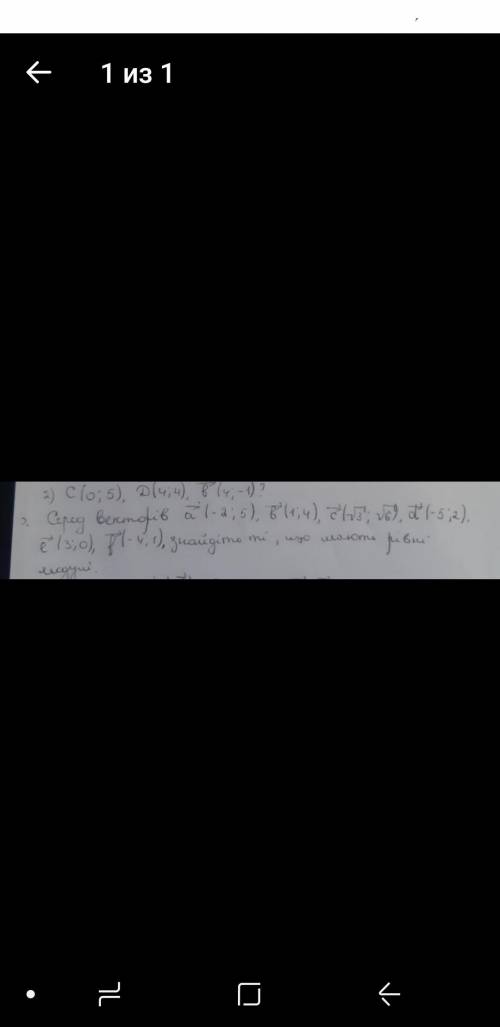 1 из 1
2) C(0; 5), D(4; 4), b⃗(4; -1)?
Серед векторів a⃗(-2; 5), b⃗(1; 4), c⃗(√3; √6), d⃗(-5; 2),
e⃗(3; 0), f⃗(-4, 1), знайдіть ті, що мають рівні
модулі.